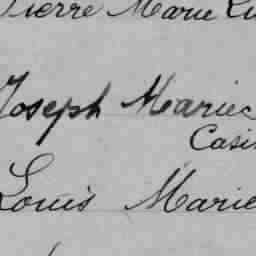 Pierre Marie
Joseph Marie
Casi
Louis Marie